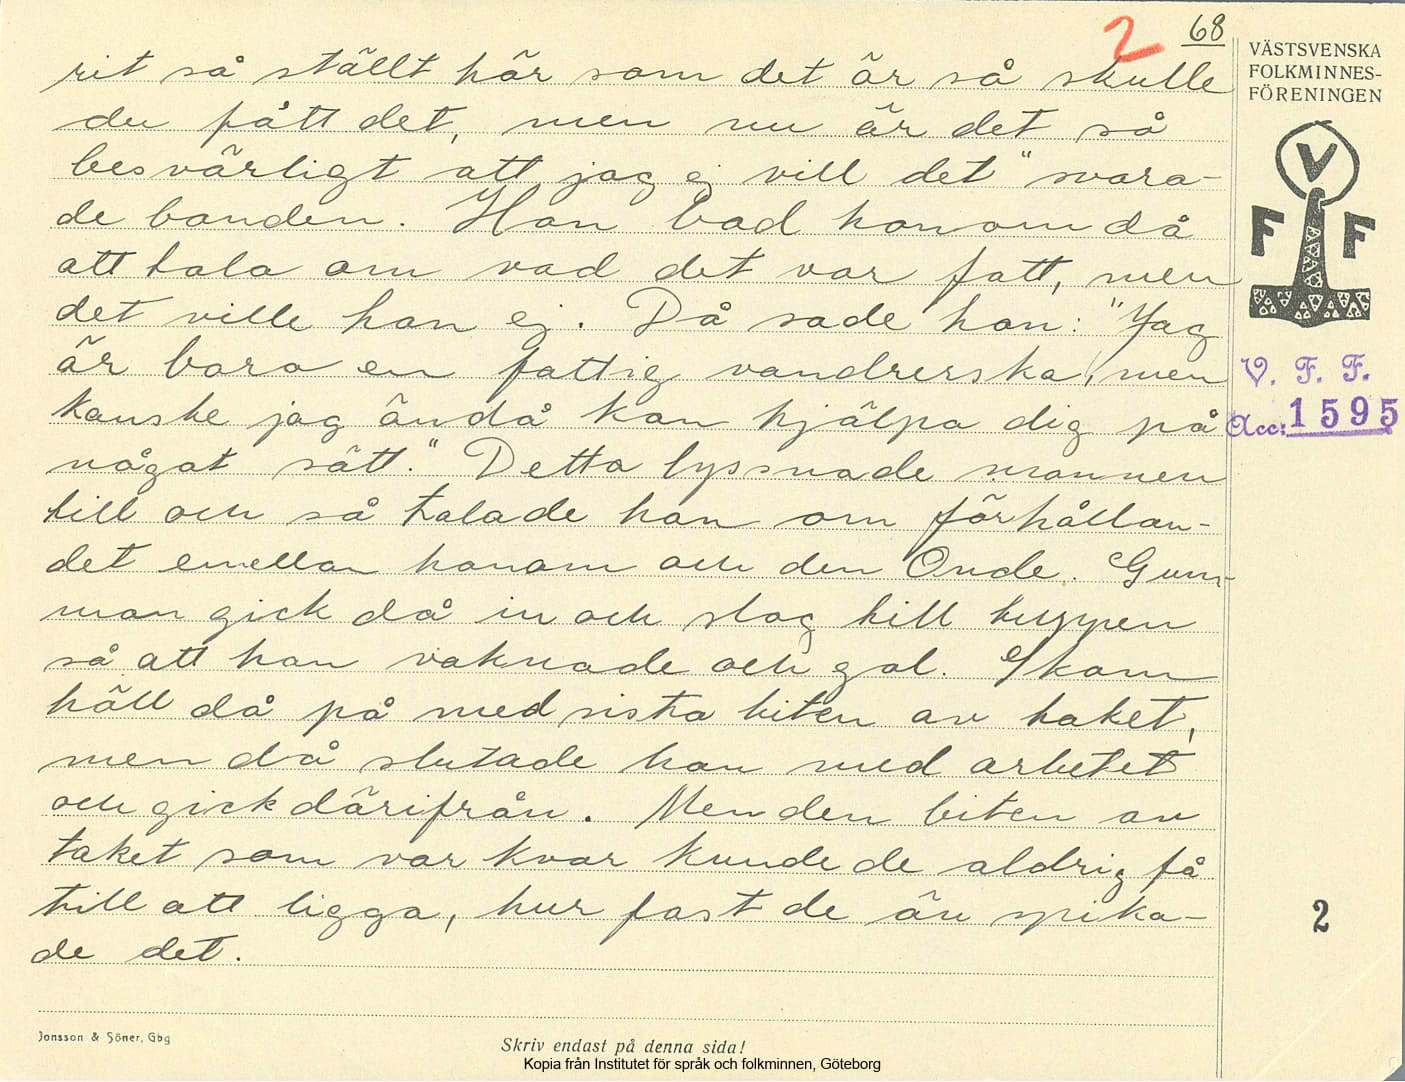 2 68
rit så ställt här som det är så skulle
du fått det, men nu är det så
besvärligt att jag ej vill det" svara-
de bonden. Hon bad honom då
att tala om vad det var fatt, men
det ville han ej. Då sade hon: "Jag
är bara en fattig vandrerska, men
kanske jag ändå kan hjälpa dig på
något sätt." Detta lyssnade mannen
till och så talade han om förhållan-
det emellan honom och den Onde. Gum-
man gick då in och slog till tuppen
så att han vaknade och gol. Skam
höll då på med sista biten av taket,
men då slutade han med arbetet
och gick därifrån. Men den biten av
taket som var kvar kunde de aldrig få
till att ligga, hur fast de än spika-
de det.
VÄSTSVENSKA
FOLKMINNES-
FÖRENINGEN
V
F F
V. F. F.
Acc: 1595
2
Jonsson & Söner, Gbg
Skriv endast på denna sida!
Kopia från Institutet för språk och folkminnen, Göteborg